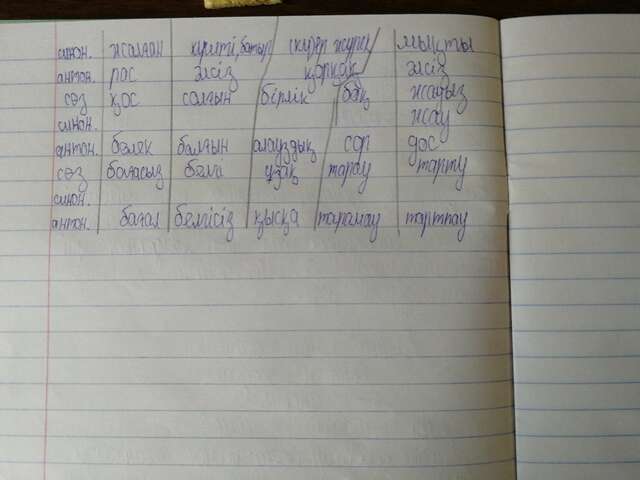 синон. жалған күшті, батыр жүрек мықты
антон. рас әлсіз қорқақ әлсіз
сөз қос салқын бірлік бақ жалғыз
синон. жау
антон. бөлек балғын алауыздық сор дос
сөз бағасыз белгі ұзақ тарау тарту
синон.
антон. бағалы белгісіз қысқа тарамау тартпау